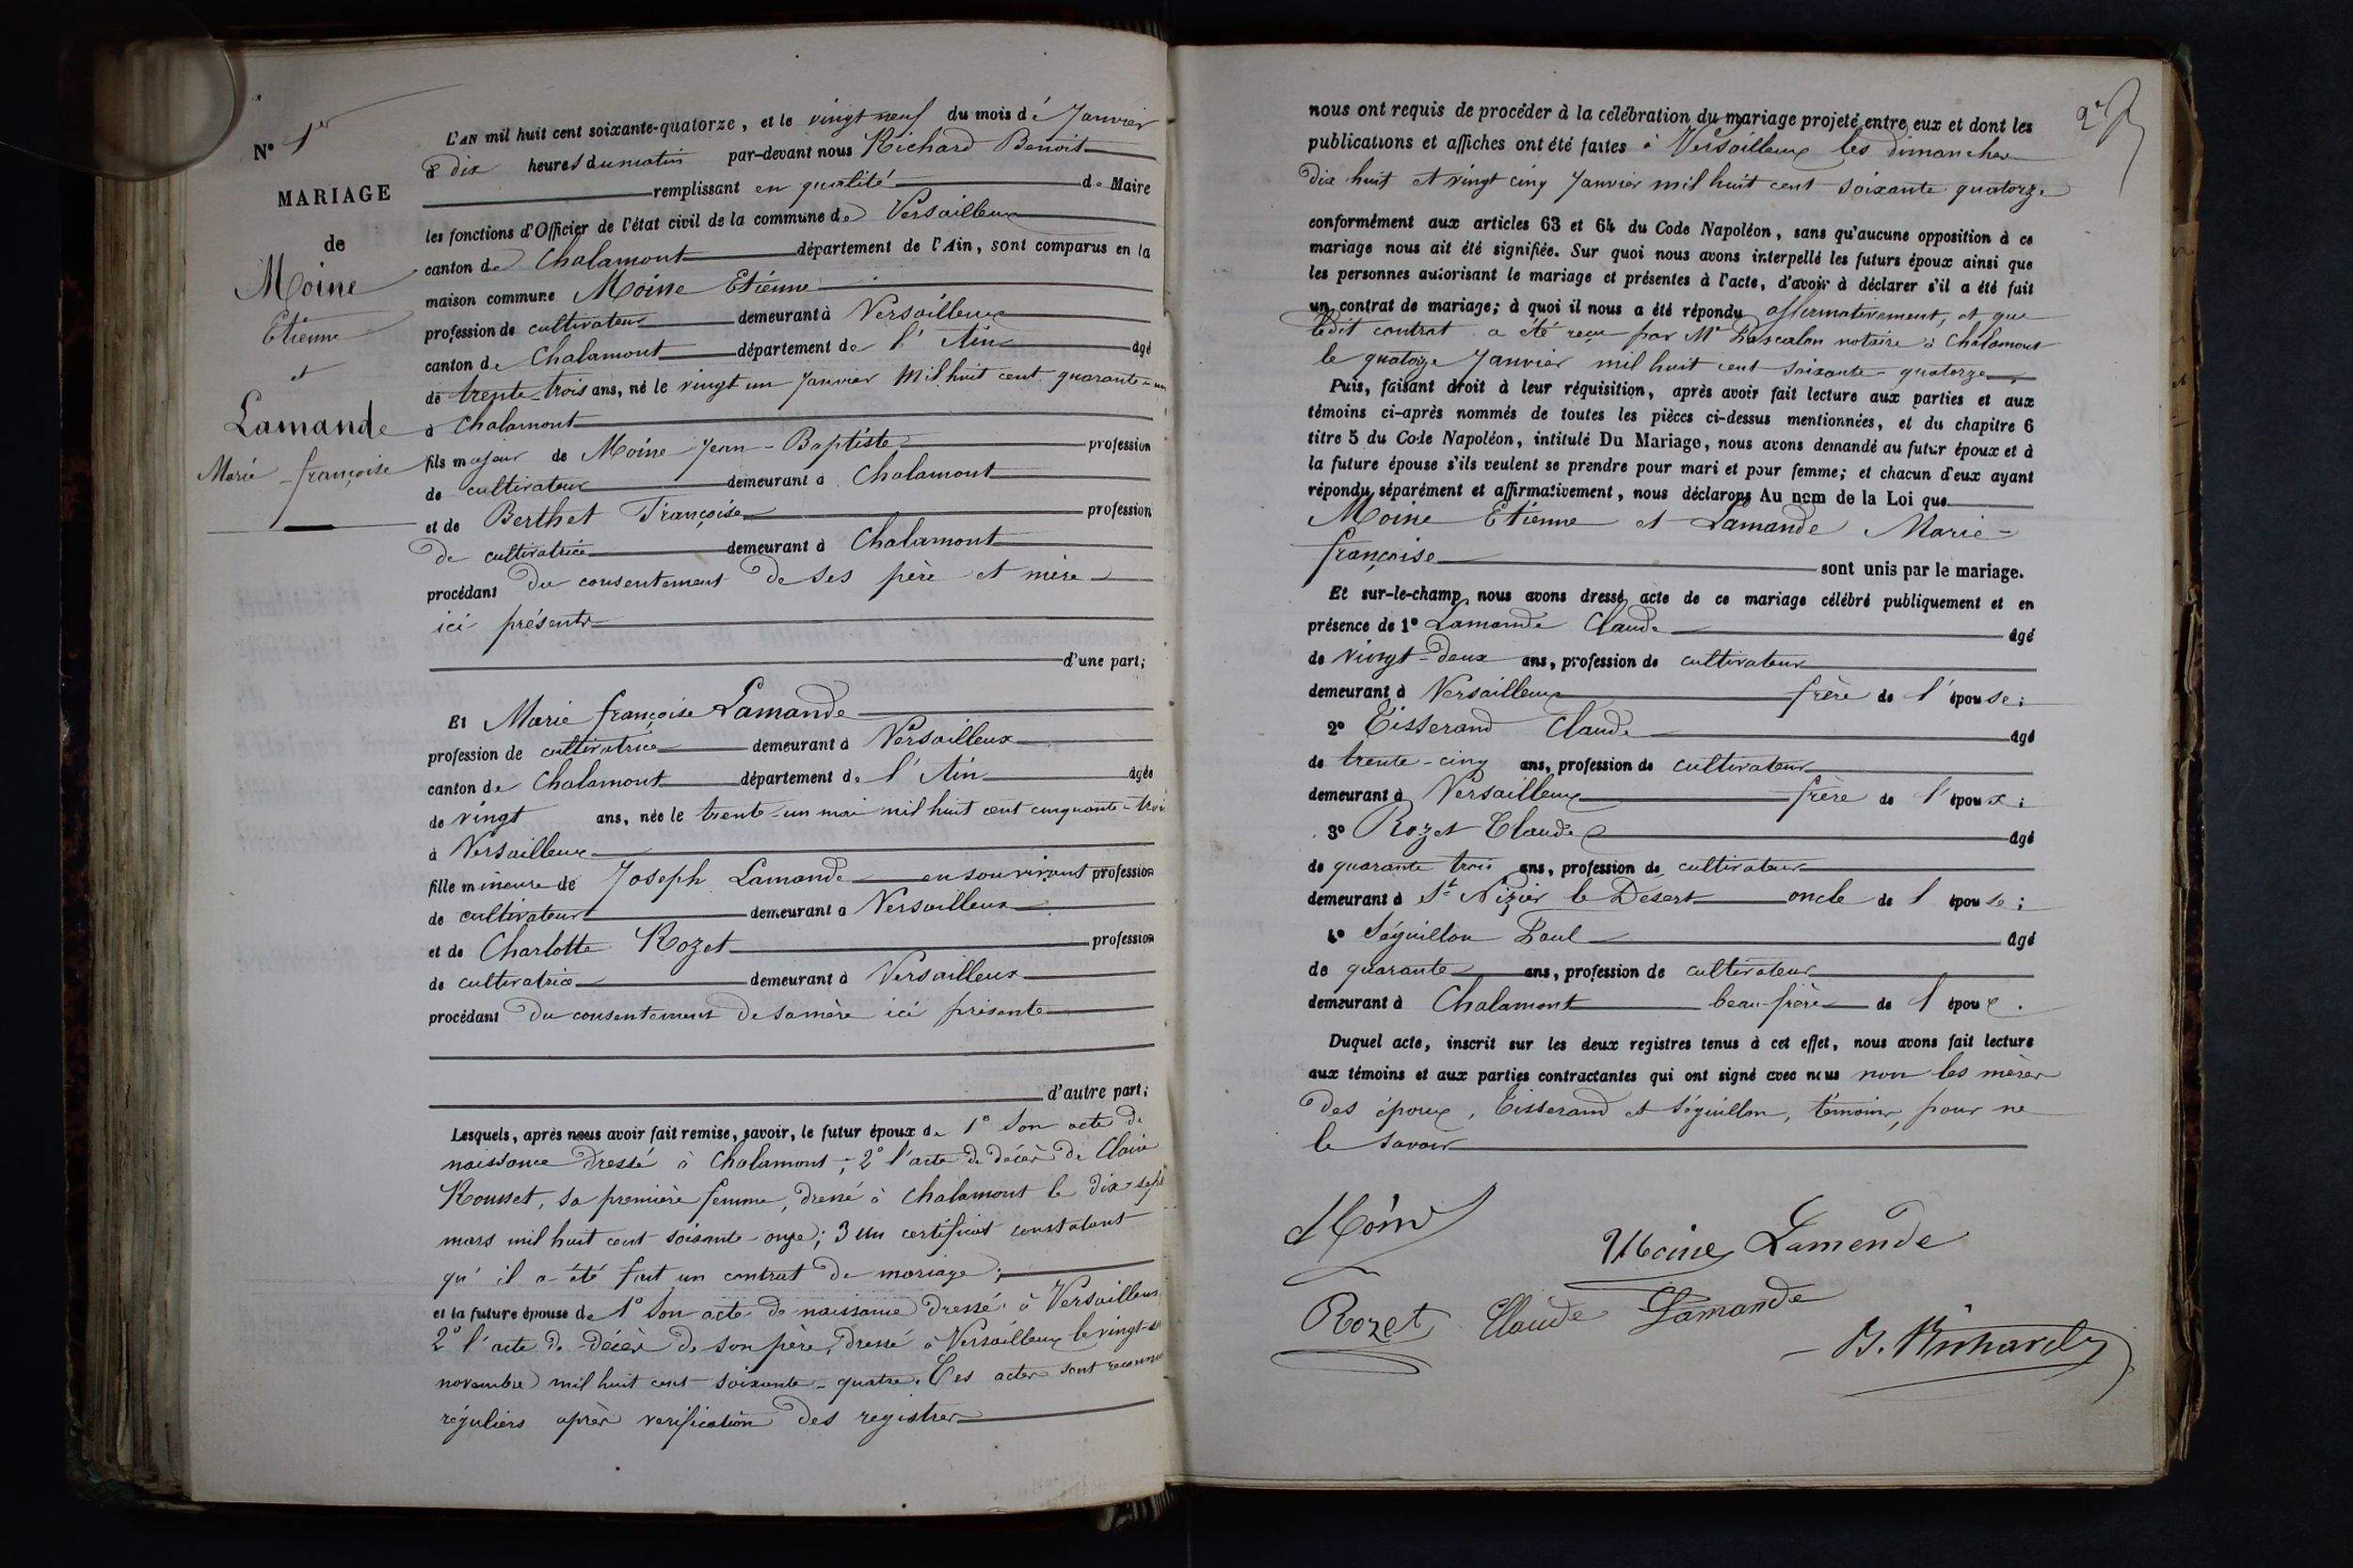 N° 1er
MARIAGE
de
Moine
Etienne
et
Lamande
Marie-françoise
L'AN mil huit cent soixante-quatorze, et le vingt neuf du mois de Janvier
à dix heures du matin par-devant nous Richard Benoit
remplissant en qualité de Maire
les fonctions d'Officier de l'état civil de la commune de Versailleux
canton de Chalamont département de l'Ain, sont comparus en la
maison commune Moine Etienne
profession de cultivateur demeurant à Versailleux
canton de Chalamont département de l'Ain âgé
de trente-trois ans, né le vingt un Janvier mil huit cent quarante-un
à Chalamont
fils majeur de Moine Jean-Baptiste profession
de cultivateur demeurant à Chalamont
et de Berthet Françoise profession
de cultivatrice demeurant à Chalamont
procédant du consentement de ses père et mère
ici présents
d'une part;
Et Marie françoise Lamande
profession de cultivatrice demeurant à Versailleux
canton de Chalamont département de l'Ain âgée
de vingt ans, née le trente-un mai mil huit cent cinquante-trois
à Versailleux
fille mineure de Joseph Lamande en son vivant profession
de cultivateur demeurant à Versailleux
et de Charlotte Rozet profession
de cultivatrice demeurant à Versailleux
procédant du consentement de sa mère ici présente
d'autre part;
Lesquels, après nous avoir fait remise, savoir, le futur époux de 1° son acte de
naissance dressé à Chalamont; 2° l'acte de décès de Claire
Rousset, sa première femme, dressé à Chalamont le dix-sept
mars mil huit cent soixante-onze; 3 un certificat constatant
qu'il a été fait un contrat de mariage;
et la future épouse de 1° son acte de naissance dressé à Versailleux
2° l'acte de décès de son père, dressé à Versailleux le
novembre mil huit cent soixante-quatre. Ces actes sont reconnus
réguliers après verification des registres
nous ont requis de procéder à la célébration du mariage projeté entre eux et dont les
publications et affiches ont été faites à Versailleux les dimanches
dix huit et vingt cinq Janvier mil huit cent soixante quatorze
conformément aux articles 63 et 64 du Code Napoléon, sans qu'aucune opposition à ce
mariage nous ait été signifiée. Sur quoi nous avons interpellé les futurs époux ainsi que
les personnes autorisant le mariage et présentes à l'acte, d'avoir à déclarer s'il a été fait
un contrat de mariage; à quoi il nous a été répondu affirmativement, et que
ledit contrat a été reçu par Me Pascalon notaire à Chalamont
le quatorze Janvier mil huit cent soixante-quatorze
Puis, faisant droit à leur réquisition, après avoir fait lecture aux parties et aux
témoins ci-après nommés de toutes les pièces ci-dessus mentionnées, et du chapitre 6
titre 5 du Code Napoléon, intitulé Du Mariage, nous avons demandé au futur époux et à
la future épouse s'ils veulent se prendre pour mari et pour femme; et chacun d'eux ayant
répondu séparément et affirmativement, nous déclarons Au nom de la Loi que
Moine Etienne et Lamande Marie-
françoise sont unis par le mariage.
Et sur-le-champ nous avons dressé acte de ce mariage célébré publiquement et en
présence de 1° Lamande Claude âgé
de vingt-deux ans, profession de cultivateur
demeurant à Versailleux frère de l'épouse;
2° Tisserand Claude âgé
de trente-cinq ans, profession de cultivateur
demeurant à Versailleux frère de l'époux;
3° Rozet Claude âgé
de quarante trois ans, profession de cultivateur
demeurant à St Nizier le Desert oncle de l épouse;
4° Séguillon Paul âgé
de quarante ans, profession de cultivateur
demeurant à Chalamont beau-frère de l époux.
Duquel acte, inscrit sur les deux registres tenus à cet effet, nous avons fait lecture
aux témoins et aux parties contractantes qui ont signé avec nous non les mères
des époux, Tisserand et Séguillon, témoins, pour ne
le savoir
Moine
Moine Lamende
Rozet Claude Lamande
B. Richard